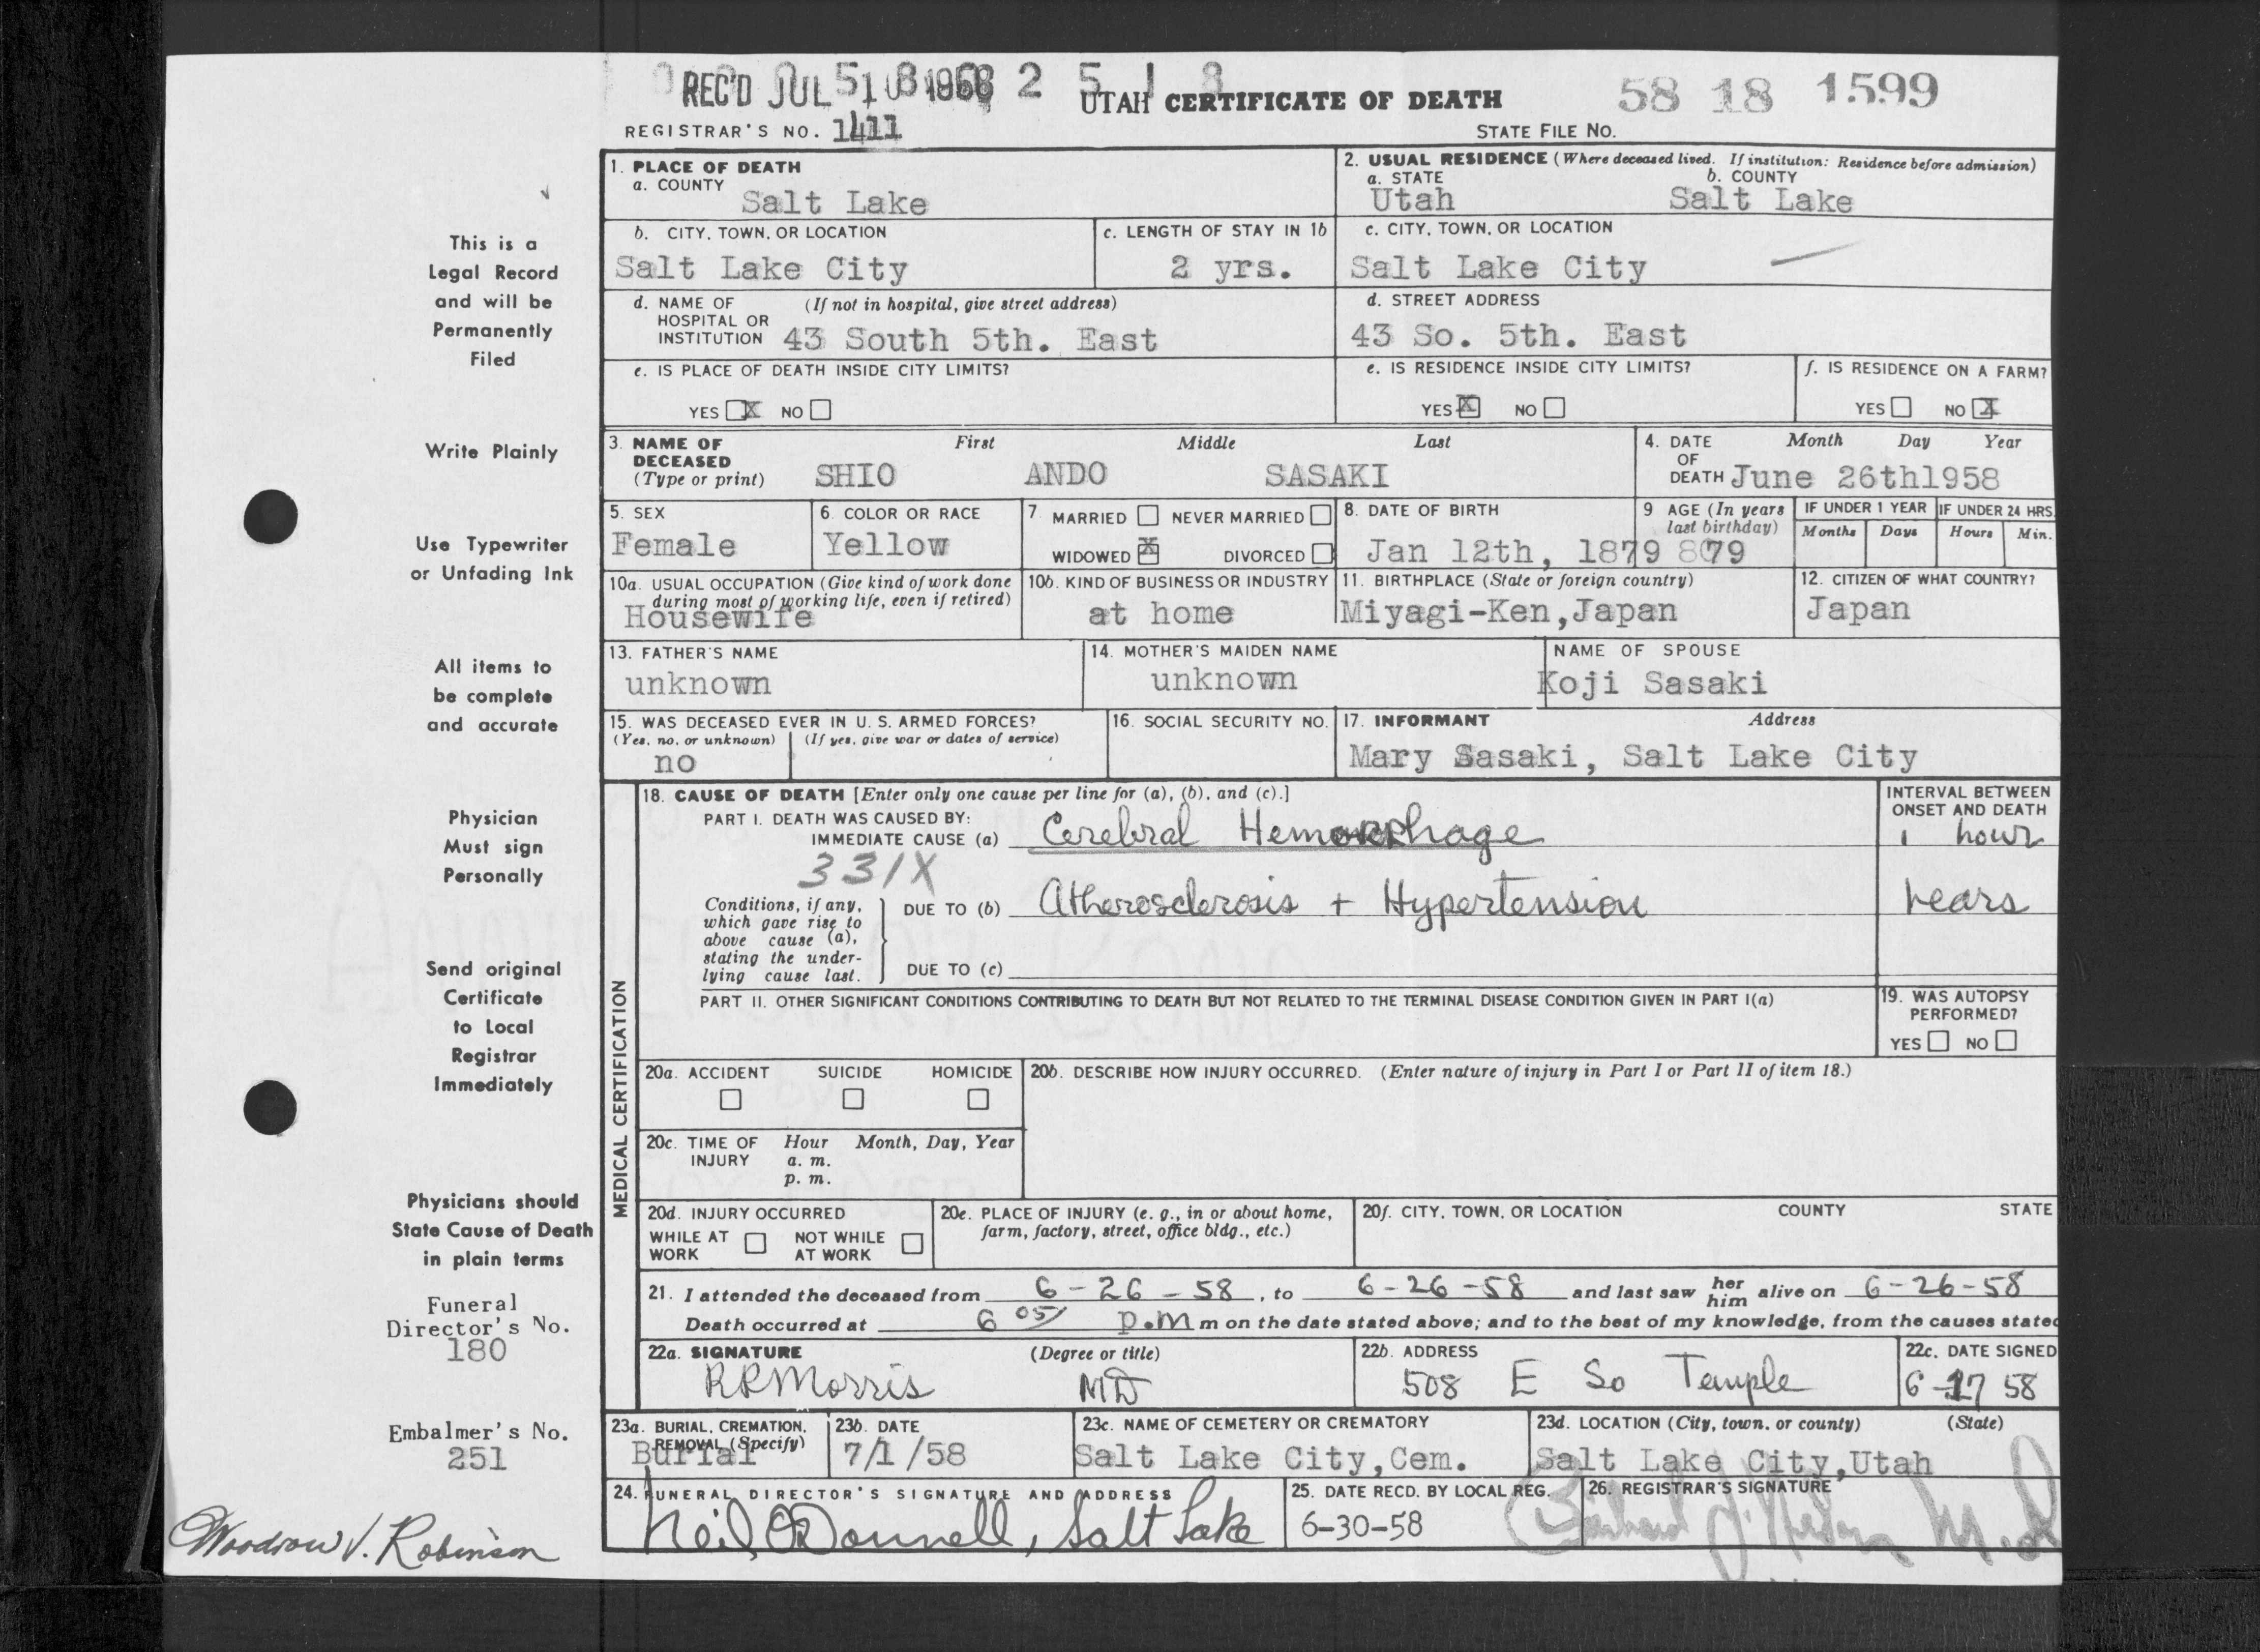 REC'D JUL
UTAH CERTIFICATE OF DEATH
58 18 1599
REGISTRAR'S NO. 1411
STATE FILE NO.
This is a
Legal Record
and will be
Permanently
Filed
Write Plainly
Use Typewriter
or Unfading Ink
All items to
be complete
and accurate
Physician
Must sign
Personally
Send original
Certificate
to Local
Registrar
Immediately
Physicians should
State Cause of Death
in plain terms
Funeral
Director's No.
180
Embalmer's No.
251
Woodrow V. Robinson
1. PLACE OF DEATH
a. COUNTY
Salt Lake
2. USUAL RESIDENCE (Where deceased lived. If institution: Residence before admission)
a. STATE b. COUNTY
Utah Salt Lake
b. CITY, TOWN, OR LOCATION
Salt Lake City
c. LENGTH OF STAY IN 1b
2 yrs.
c. CITY, TOWN, OR LOCATION
Salt Lake City
d. NAME OF (If not in hospital, give street address)
HOSPITAL OR
INSTITUTION 43 South 5th. East
d. STREET ADDRESS
43 So. 5th. East
e. IS PLACE OF DEATH INSIDE CITY LIMITS?
YES X NO
e. IS RESIDENCE INSIDE CITY LIMITS?
YES X NO
f. IS RESIDENCE ON A FARM?
YES NO X
3. NAME OF First Middle Last
DECEASED
(Type or print) SHIO ANDO SASAKI
4. DATE Month Day Year
OF
DEATH June 26th1958
5. SEX
Female
6. COLOR OR RACE
Yellow
7. MARRIED NEVER MARRIED
WIDOWED X DIVORCED
8. DATE OF BIRTH
Jan 12th, 1879
9 AGE (In years
last birthday)
79
IF UNDER 1 YEAR
Months Days
IF UNDER 24 HRS.
Hours Min.
10a. USUAL OCCUPATION (Give kind of work done
during most of working life, even if retired)
Housewife
10b. KIND OF BUSINESS OR INDUSTRY
at home
11. BIRTHPLACE (State or foreign country)
Miyagi-Ken,Japan
12. CITIZEN OF WHAT COUNTRY?
Japan
13. FATHER'S NAME
unknown
14. MOTHER'S MAIDEN NAME
unknown
NAME OF SPOUSE
Koji Sasaki
15. WAS DECEASED EVER IN U. S. ARMED FORCES?
(Yes, no, or unknown) (If yes, give war or dates of service)
no
16. SOCIAL SECURITY NO.
17. INFORMANT Address
Mary Sasaki, Salt Lake City
MEDICAL CERTIFICATION
18. CAUSE OF DEATH [Enter only one cause per line for (a), (b), and (c).]
INTERVAL BETWEEN
ONSET AND DEATH
PART I. DEATH WAS CAUSED BY:
IMMEDIATE CAUSE (a) Cerebral Hemorrhage 1 hour
331X
Conditions, if any,
which gave rise to
above cause (a),
stating the under-
lying cause last.
DUE TO (b) Atherosclerosis + Hypertension years
DUE TO (c)
PART II. OTHER SIGNIFICANT CONDITIONS CONTRIBUTING TO DEATH BUT NOT RELATED TO THE TERMINAL DISEASE CONDITION GIVEN IN PART I(a)
19. WAS AUTOPSY
PERFORMED?
YES NO
20a. ACCIDENT SUICIDE HOMICIDE
20b. DESCRIBE HOW INJURY OCCURRED. (Enter nature of injury in Part I or Part II of item 18.)
20c. TIME OF Hour Month, Day, Year
INJURY a. m.
p. m.
20d. INJURY OCCURRED
WHILE AT NOT WHILE
WORK AT WORK
20e. PLACE OF INJURY (e. g., in or about home,
farm, factory, street, office bldg., etc.)
20f. CITY, TOWN, OR LOCATION COUNTY STATE
21. I attended the deceased from 6-26-58, to 6-26-58 and last saw her him alive on 6-26-58
Death occurred at 6 05 p.m m on the date stated above; and to the best of my knowledge, from the causes stated
22a. SIGNATURE (Degree or title)
RRMorris MD
22b. ADDRESS
508 E So Temple
22c. DATE SIGNED
6-27 58
23a. BURIAL, CREMATION,
REMOVAL (Specify)
Burial
23b. DATE
7/1/58
23c. NAME OF CEMETERY OR CREMATORY
Salt Lake City,Cem.
23d. LOCATION (City, town, or county) (State)
Salt Lake City,Utah
24. FUNERAL DIRECTOR'S SIGNATURE AND ADDRESS
Neil O'Donnell, Salt Lake
25. DATE RECD. BY LOCAL REG.
6-30-58
26. REGISTRAR'S SIGNATURE